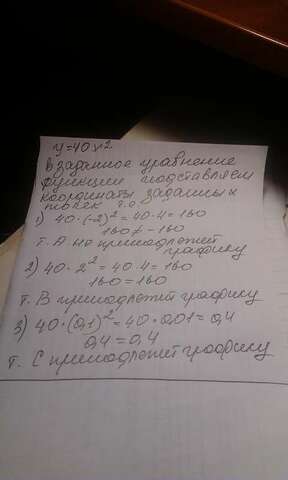 y=40x2
В заданное уравнение
функции подставляем
координаты заданных
точек т.е.
1) 40·(-2)²=40·4=160
160≠-160
т. А не принадлежит
графику
2) 40·2²=40·4=160
160=160
т. В принадлежит графику
3) 40·(0,1)²=40·0,01=0,4
0,4=0,4
т. С принадлежит графику